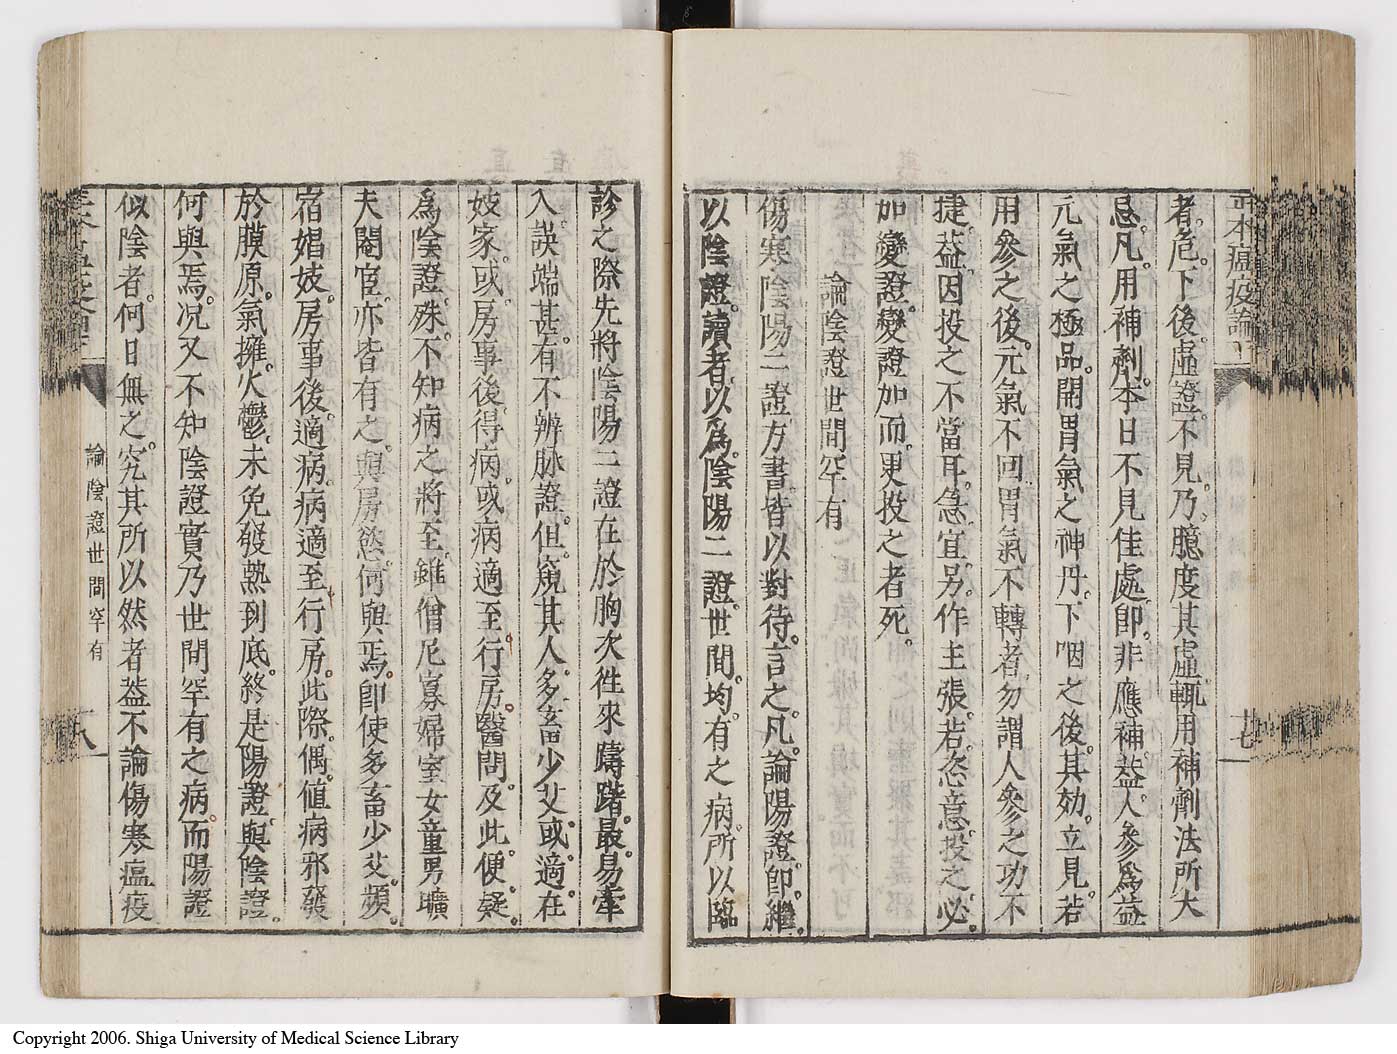 者危下後虛證不見乃臆度其虛輒用補劑法所大
忌凡用補劑本日不見佳處即非應補葢人參為益
元氣之極品開胃氣之神丹下咽之後其効立見若
用參之後元氣不回胃氣不轉者勿謂人參之功不
捷葢因投之不當耳急宜另作主張若恣意投之必
加變證變證加而更投之者死
論陰證世間罕有
傷寒陰陽二證方書皆以對待言之凡論陽證即繼
以陰證讀者以為陰陽二證世間均有之病所以臨
診之際先將陰陽二證在於胸次徃來躊躇最易牽
入誤端甚有不辨脉證但窺其人多畜少艾或適在
妓家或房事後得病或病適至行房醫問及此便疑
為陰證殊不知病之將至雖僧尼寡婦室女童男曠
夫閹宦亦皆有之與房慾何與焉即使多畜少艾頻
宿娼妓房事後適病病適至行房此際偶值病邪發
於膜原氣擁火鬱未免發熱到底終是陽證與陰證
何與焉况又不知陰證實乃世間罕有之病而陽證
似陰者何日無之究其所以然者葢不論傷寒瘟疫
論陰證世間罕有
十八
本瘟疫論
十七
Copyright 2006. Shiga University of Medical Science Library